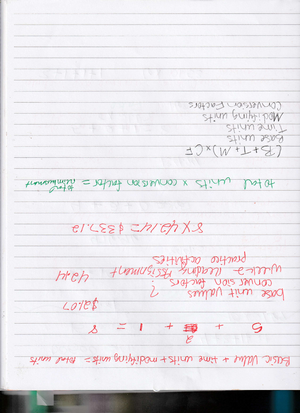 Basic Value + time units + modifying units = total units
5 + 2 + 1 = 8
$21.07
base unit values ?
conversion factors 42.14
week-2 Reading Assignment
practice activities
8 x 42.14 = $337.12
total units x conversion factor = total
(B+T+M) x CF
Base units
Time units
Modifying units
Conversion Factors